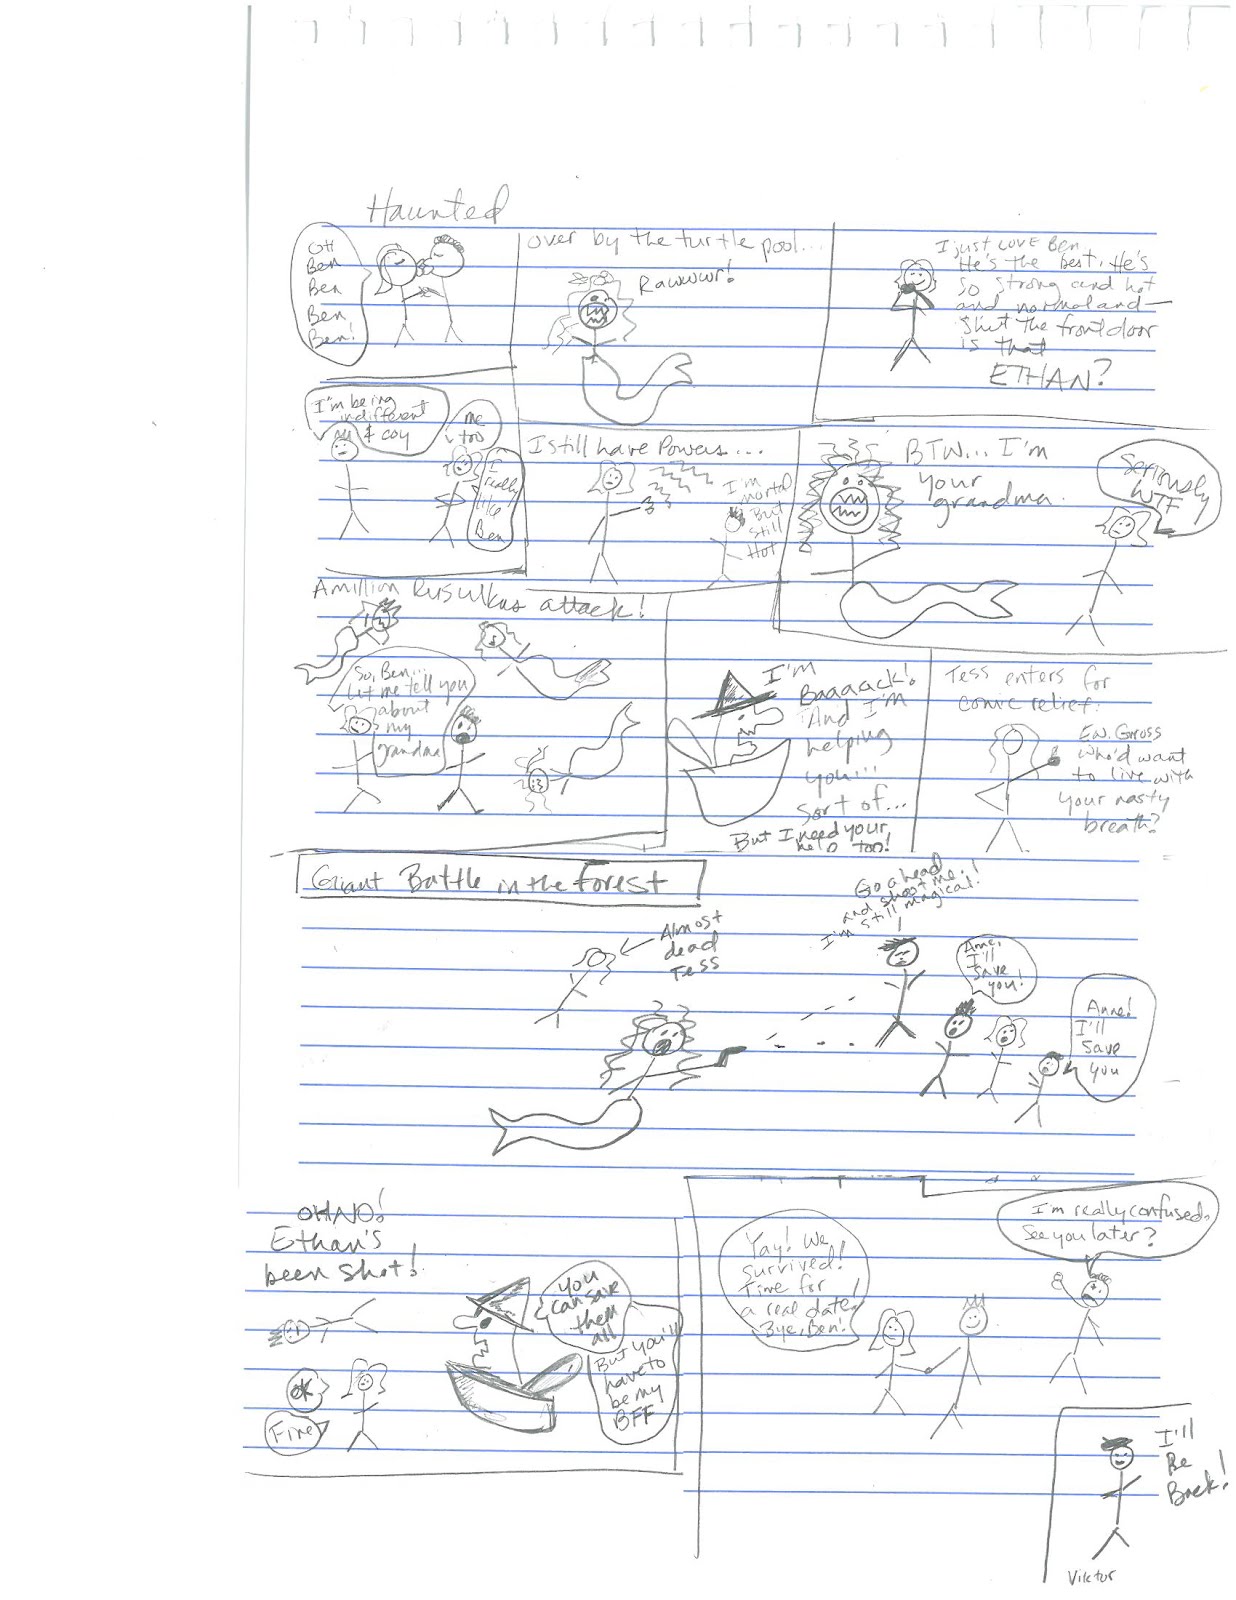 Haunted
OH
Ben
Ben
Ben
Ben!
Over by the turtle pool...
Rawwwr!
I just LOVE Ben.
He's the best. He's
so strong and hot
and normal and—
Shut the front door
is that
ETHAN?
I'm being
indifferent
& coy
me
too
I
really
like
Ben
I still have Powers...
I'm
mortal
But
still
Hot
BTW... I'm
your
grandma.
Seriously
WTF
A million Rusulkas attack!
So, Ben...
Let me tell you
about
my
grandma
I'm
Baaaack!
And I'm
helping
you...
Sort of...
But I need your
help too!
Tess enters for
comic relief.
Ew. Gross
Who'd want
to live with
your nasty
breath?
Giant Battle in the Forest
Almost
dead
Tess
Go ahead
and shoot me!
I'm still magical!
Anne,
I'll
save
you!
Anne!
I'll
save
you
OH NO!
Ethan's
been shot!
OK
Fine
You
can save
them
all
But you'll
have to
be my
BFF
Yay! We
survived!
Time for
a real date!
Bye, Ben!
I'm really confused.
See you later?
I'll
Be
Back!
Viktor